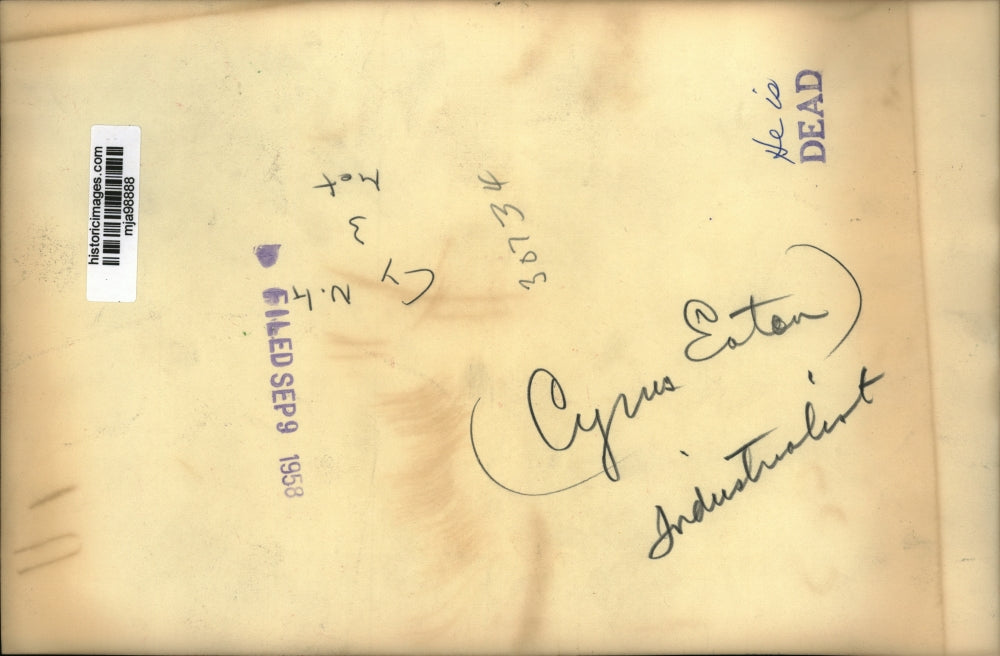 historicimages.com
mja98888
FILED SEP 9 1958
36734
He is
DEAD
(Cyrus Eaton)
Industrialist